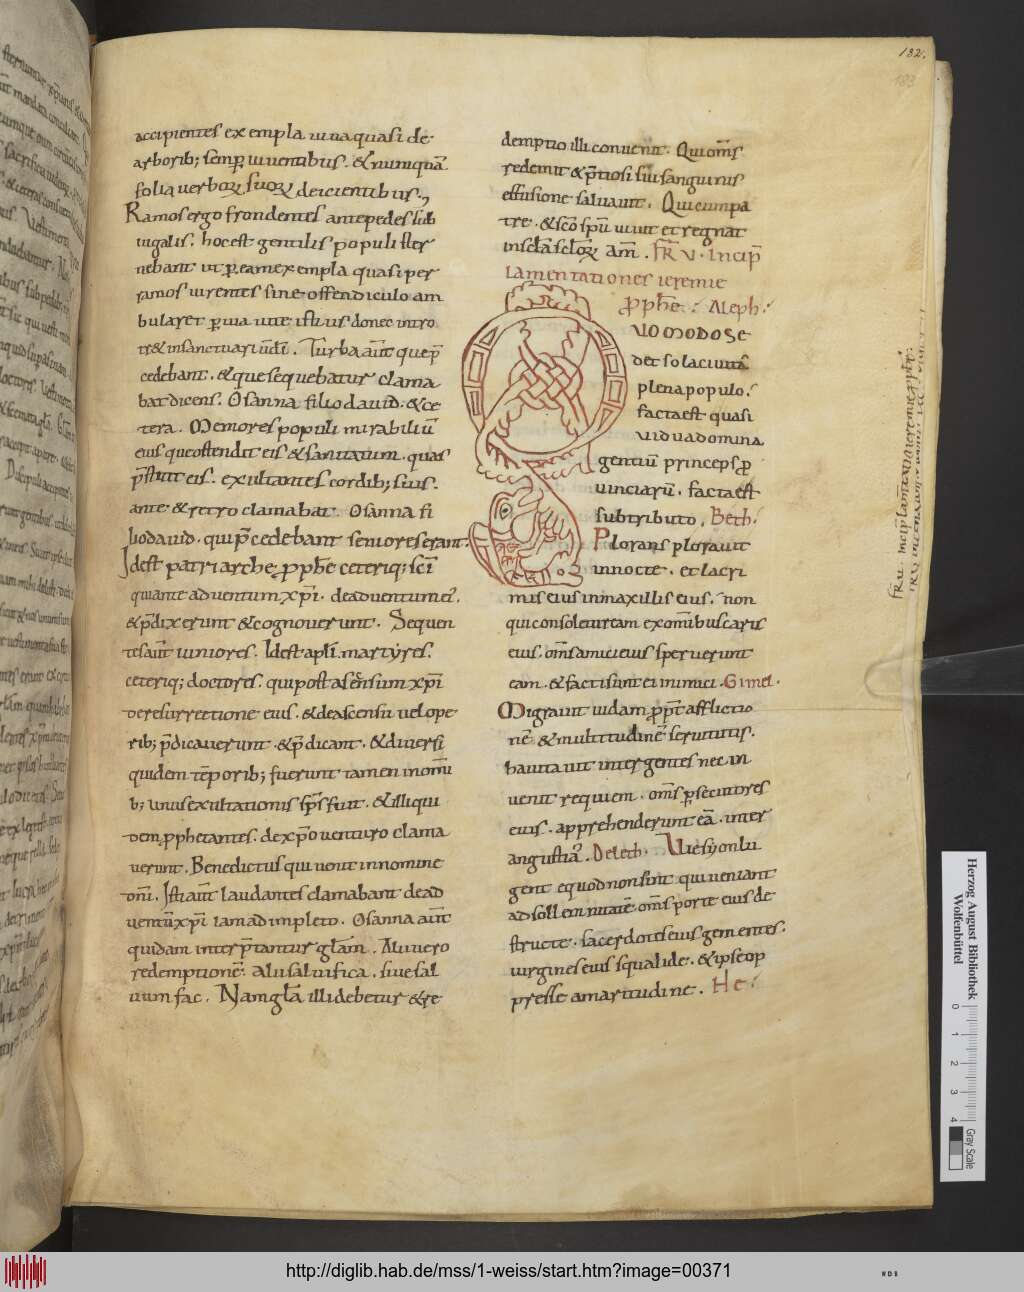 132.
183
accipientes exempla in via quasi de
arborib; semp̄ viventibus. & nu̅quā
folia verboꝝ suoꝝ deicientibus,
Ramos ergo frondentes ante pedes sub
iugalis. hoc est gentilis populi ster
nebant ut p̱ eam exempla quasi per
ramos virentes sine offendiculo am
bularet p̱ via vite istius donec intro
ir& in sanctuariū dī. Turba aūt que p̄
cedebant. & que sequebatur clama
bat dicens. Osanna filio david. & ce
tera. Memores populi mirabiliū
eius que ostendit eis & sanitatum. quas
p̄stitit eis. exultantes cordib; suis.
ante & retro clamabat. Osanna fi
lio david. qui p̄cedebant seniores erant.
Idest patriarche, p̱ph̄e ceteriq; sc̄i
qui ante adventum xp̄i. de adventum ei'.
& p̄dixerunt & cognoverunt. Sequen
tes aūt iuniores. Idest apl̄i. martyres.
ceteriq; doctores. qui post ascensum xp̄i
de resurrectione eius. & de ascensu vel ope
rib; p̄dicaverunt. & p̄dicant. & diversi
quidem tēporib; fuerunt tamen in omī
b; unus exultationis sp̄s fuit. & illi qui
dem p̱phetantes. de xp̄o venturo clama
verunt. Benedictus qui venit in nomine
dn̄i. Isti aūt laudantes clamabant de ad
ventū xp̄i iam adimpleto. Osanna aūt
quidam interp̄tantur gl̄am. Alii vero
redemptionē. Alii salvifica. sive sal
vum fac. Nam gl̄a illi debetur & re
demptio illi convenit. Qui om̄s
redemit & p̄tiosi sui sanguinis
effusione salvavit. Qui cum pa
tre. & sc̄o sp̄u vivit et regnat
in scl̄a scl̄oꝝ am̄. F̄R V. Incip̄
Lamentationes ieremie
p̱ph̄e. Aleph.
QUOMODO SE
det sola civitas
plena populo.
facta est quasi
vidua domina
gentiū princeps p̱
vinciarū. facta est
sub tributo. Beth.
Plorans ploravit
in nocte. et lacri
mis eius in maxillis eius. non
qui consoletur eam ex om̄ibus caris
eius. om̄s amici eius sperverunt
eam. & facti sunt ei inimici. Gimel.
Migravit iudam p̱pt̄ afflictio
nē & multitudinē servitutis.
habitavit inter gentes nec in
venit requiem. om̄s p̱secutores
eius. apprehenderunt eā. inter
angustia'. Deleth. Uie syon lu
gent eo quod non sint qui veniant
ad sollemnitatē. om̄s porte eius de
structe. sacerdotes eius gementes.
virgines eius squalide. & ipse op
presse amaritudine. He.
Herzog August Bibliothek
Wolfenbüttel
0 1 2 3 4
Gray Scale
http://diglib.hab.de/mss/1-weiss/start.htm?image=00371